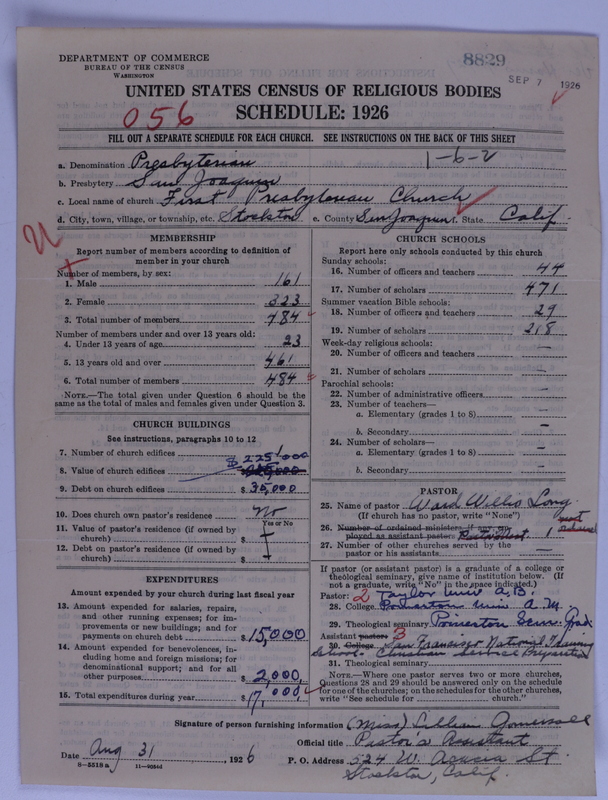 DEPARTMENT OF COMMERCE
BUREAU OF THE CENSUS
WASHINGTON
8829
SEP 7 1926
UNITED STATES CENSUS OF RELIGIOUS BODIES
056
SCHEDULE: 1926
FILL OUT A SEPARATE SCHEDULE FOR EACH CHURCH. SEE INSTRUCTIONS ON THE BACK OF THIS SHEET
1-6-2
a. Denomination Presbyterian
b. Presbytery San Joaquin
c. Local name of church First Presbyterian Church
d. City, town, village, or township, etc. Stockton e. County San Joaquin f. State Calif.
MEMBERSHIP
Report number of members according to definition of
member in your church
Number of members, by sex:
1. Male 161
2. Female 323
3. Total number of members 484
Number of members under and over 13 years old:
4. Under 13 years of age 23
5. 13 years old and over 461
6. Total number of members 484
NOTE.—The total given under Question 6 should be the
same as the total of males and females given under Question 3.
CHURCH BUILDINGS
See instructions, paragraphs 10 to 12
7. Number of church edifices 1
$ 225,000
8. Value of church edifices
9. Debt on church edifices $ 35,000
10. Does church own pastor's residence? No
Yes or No
11. Value of pastor's residence (if owned by
church) $
12. Debt on pastor's residence (if owned by
church) $
EXPENDITURES
Amount expended by your church during last fiscal year
13. Amount expended for salaries, repairs,
and other running expenses; for im-
provements or new buildings; and for
payments on church debt $ 15,000
14. Amount expended for benevolences, in-
cluding home and foreign missions; for
denominational support; and for all
other purposes 2,000
15. Total expenditures during year $ 17,000
CHURCH SCHOOLS
Report here only schools conducted by this church
Sunday schools:
16. Number of officers and teachers 44
17. Number of scholars 471
Summer vacation Bible schools:
18. Number of officers and teachers 27
19. Number of scholars 218
Week-day religious schools:
20. Number of officers and teachers —
21. Number of scholars —
Parochial schools:
22. Number of administrative officers —
23. Number of teachers—
a. Elementary (grades 1 to 8) —
b. Secondary —
24. Number of scholars—
a. Elementary (grades 1 to 8) —
b. Secondary —
PASTOR
25. Name of pastor Ward Willis Long
(If church has no pastor, write "None")
26. Number of ordained ministers if any em-
ployed as assistant pastors 1 not ordained
27. Number of other churches served by the
pastor or his assistants —
If pastor (or assistant pastor) is a graduate of a college or
theological seminary, give name of institution below. (If
not a graduate, write "No" in the space indicated.)
Pastor: 2 Taylor Univ A.B.
28. College Princeton Univ A.M.
29. Theological seminary Princeton Sem. Grad.
Assistant pastor: 3
30. College San Francisco National Training
School Christian Service
31. Theological seminary
NOTE.—Where one pastor serves two or more churches,
Questions 28 and 29 should be answered only on the schedule
for one of the churches; on the schedules for the other churches,
write "See schedule for church."
Signature of person furnishing information (Miss) Lillian
Official title Pastor's Assistant
Date Aug 31, 1926 P. O. Address 524 W. Acacia St.
Stockton, Calif.
8-5518 a 11-9084d